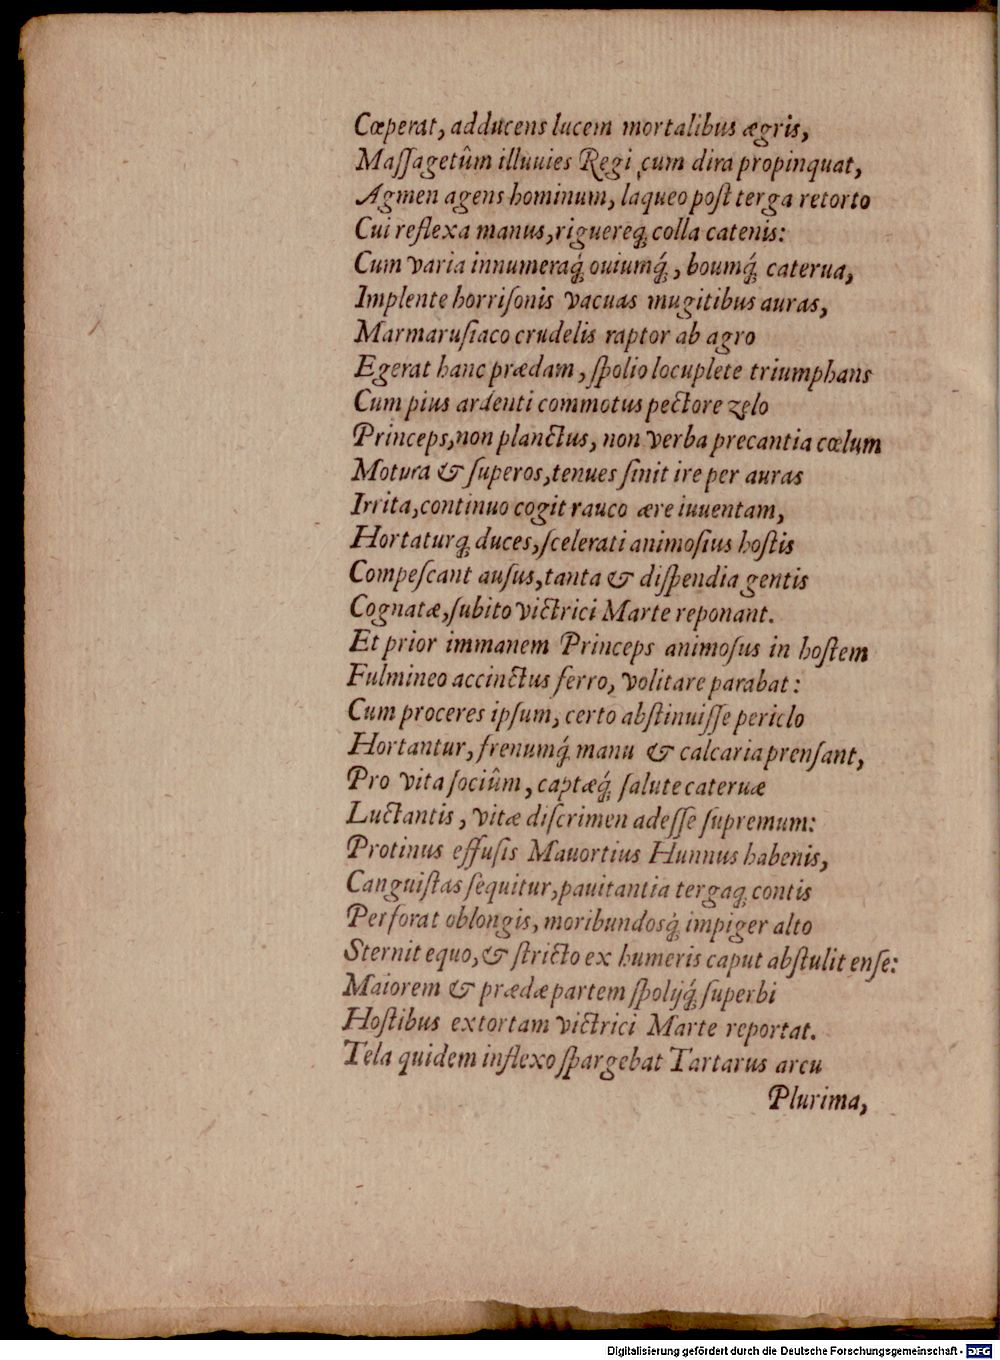 Cœperat, adducens lucem mortalibus ægris,
Maſſagetûm illuuies Regi cum dira propinquat,
Agmen agens hominum, laqueo poſt terga retorto
Cui reflexa manus, riguereq́; colla catenis:
Cum varia innumeraq́; ouiumq́;, boumq́; caterua,
Implente horriſonis vacuas mugitibus auras,
Marmaruſiaco crudelis raptor ab agro
Egerat hanc prædam, ſpolio locuplete triumphans
Cum pius ardenti commotus pectore zęlo
Princeps, non planctus, non verba precantia cœlum
Motura & ſuperos, tenues ſinit ire per auras
Irrita, continuo cogit rauco ære iuuentam,
Hortaturq́; duces, ſcelerati animoſius hoſtis
Compeſcant auſus, tanta & diſpendia gentis
Cognatæ, ſubito victrici Marte reponant.
Et prior immanem Princeps animoſus in hoſtem
Fulmineo accinctus ferro, volitare parabat:
Cum proceres ipſum, certo abſtinuiſſe periclo
Hortantur, frenumq́; manu & calcaria prenſant,
Pro vita ſociûm, captæq́; ſalute cateruæ
Luctantis, vitæ diſcrimen adeſſe ſupremum:
Protinus effuſis Mauortius Hunnus habenis,
Canguiſtas ſequitur, pauitantia tergaq́; contis
Perforat oblongis, moribundosq́; impiger alto
Sternit equo, & ſtricto ex humeris caput abſtulit enſe:
Maiorem & prædæ partem ſpolijq́; ſuperbi
Hoſtibus extortam victrici Marte reportat.
Tela quidem inflexo ſpargebat Tartarus arcu
Plurima,
Digitalisierung gefördert durch die Deutsche Forschungsgemeinschaft - DFG